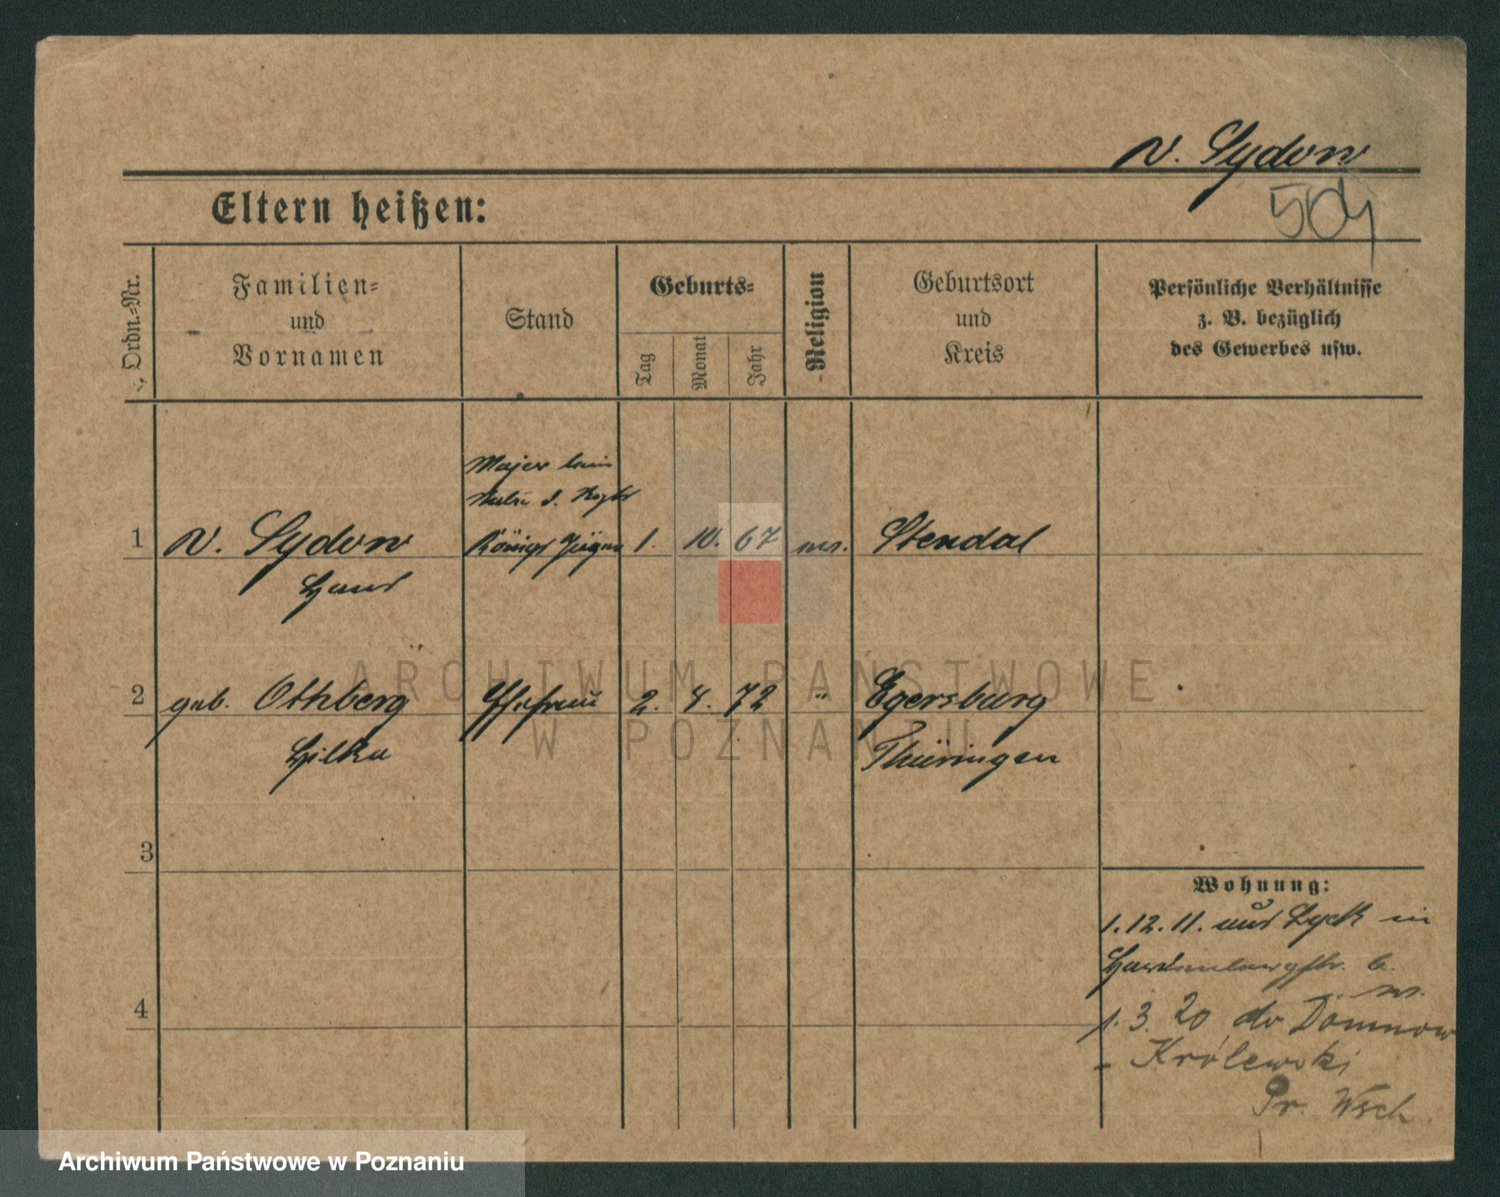 v. Sydow
Eltern heißen:
Ordn.-Nr.
Familien-
und
Vornamen
Stand
Geburts-
Tag
Monat
Jahr
Religion
Geburtsort
und
Kreis
Persönliche Verhältnisse
z. B. bezüglich
des Gewerbes usw.
Major beim
Königs Jäger
1 v. Sydow 1. 10. 67 Stendal
Hans
2 geb. Othberg Ehefrau 2. 4. 72 " Egersburg
Hilka Thüringen
3
4
Wohnung:
1. 12. 11. aus Lyck in
Hardenbergstr. 6.
1. 3. 20 do Domnow
Królewski
Pr. Wsch.
ARCHIWUM PAŃSTWOWE
W POZNANIU
Archiwum Państwowe w Poznaniu